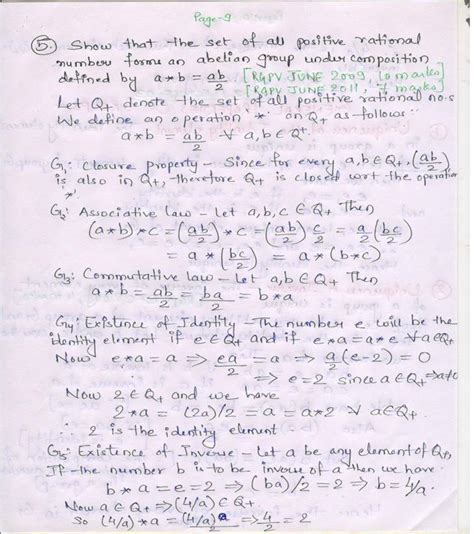 Page-9
5. Show that the set of all positive rational
number forms an abelian group under composition
defined by a*b = ab/2 [RGPV JUNE 2009, 10 marks]
[RGPV JUNE 2011, 7 marks]
Let Q+ denote the set of all positive rational no.s
We define an operation '*' on Q+ as follows:
a*b = ab/2 ∀ a,b ∈ Q+
G1: Closure property - Since for every a,b ∈ Q+, (ab/2)
is also in Q+, therefore Q+ is closed wrt the operation
*'
G2: Associative law - Let a,b,c ∈ Q+ Then
(a*b)*c = (ab/2)*c = (ab/2) c/2 = a/2 (bc/2)
= a*(bc/2) = a*(b*c)
G3: Commutative law - Let a,b ∈ Q+ Then
a*b = ab/2 = ba/2 = b*a
G4: Existence of Identity - The number e will be the
identity element if e ∈ Q+ and if e*a = a*e ∀ a∈Q+
Now e*a = a ⇒ ea/2 = a ⇒ a/2 (e-2) = 0
⇒ e = 2 since a ∈ Q+ ⇒ a≠0
Now 2 ∈ Q+ and we have
2*a = (2a)/2 = a = a*2 ∀ a∈Q+
∴ 2 is the identity element
G5: Existence of Inverse - Let a be any element of Q+,
If the number b is to be inverse of a then we have
b*a = e = 2 ⇒ (ba)/2 = 2 ⇒ b = 4/a
Now a ∈ Q+ ⇒ (4/a) ∈ Q+
So (4/a)*a = (4/a)a/2 ⇒ 4/2 = 2